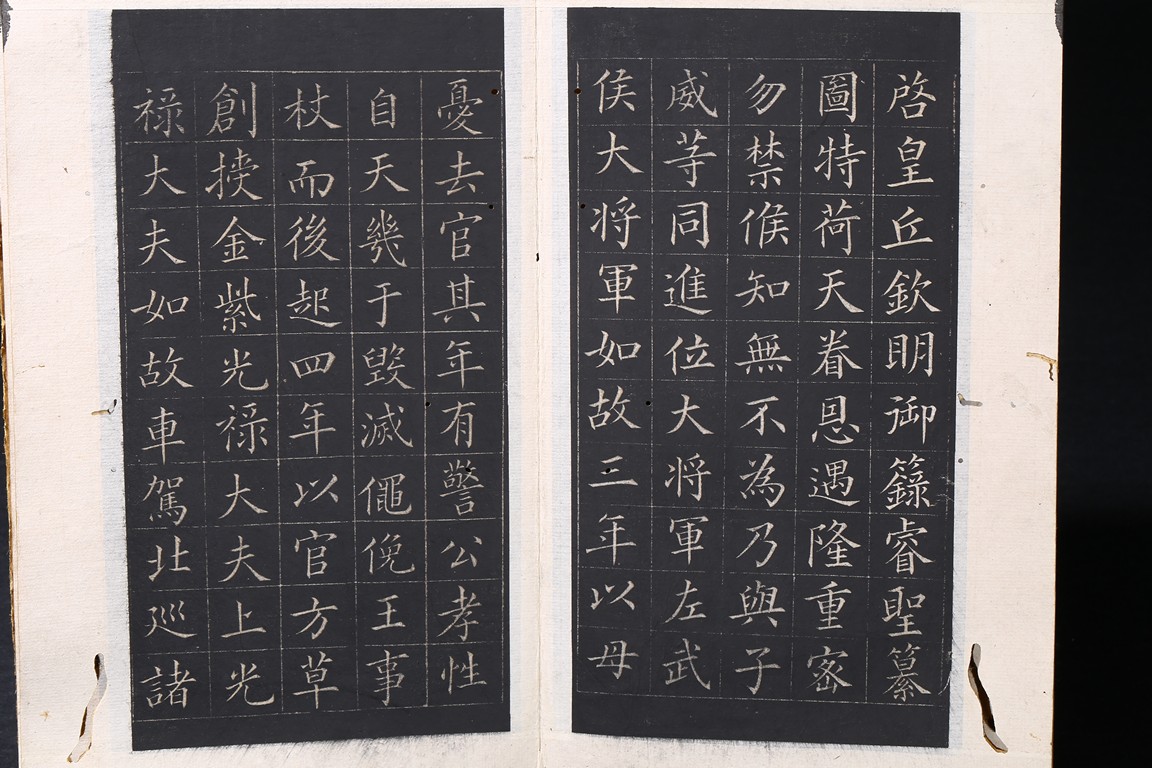 啓皇丘欽明御籙睿聖纂
圖特荷天眷恩遇隆重密
勿禁候知無不為乃與子
威等同進位大将軍左武
侯大将軍如故三年以母
憂去官其年有警公孝性
自天幾于毀滅僶俛王事
杖而後起四年以官方草
創授金紫光禄大夫上光
禄大夫如故車駕北巡諸